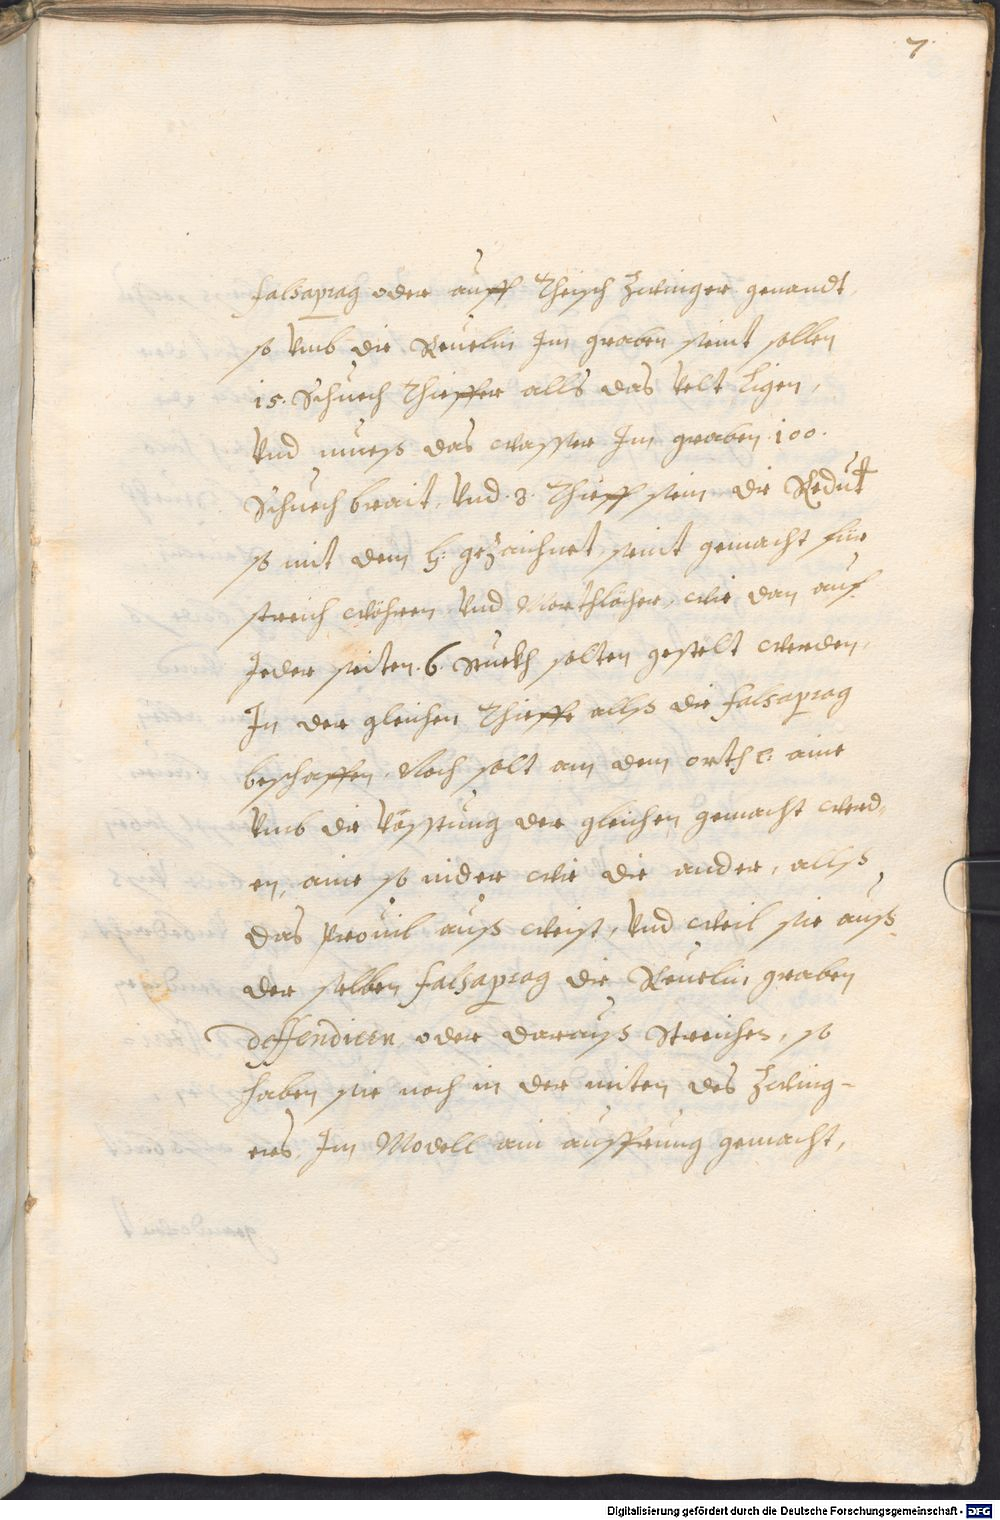 7
falsaprag oder auff Theisch Zwinger genandt,
so Vmb die Reuelin Im graben seint sollen
15. Schuech Thieffer alls das Velt Ligen,
Vnd muess das wasser Im graben 100.
Schuech brait, Vnd .8. Thieff sein die Redut
so mit dem h: gezaichnet, seint gemacht für
streich wöhren Vnd Morthlöcher, wie dan auf
Jeder seiten .6. Stuckh solten gestelt werden,
In der gleichen Thieffe allss die falsaprag
beschaffen. Noch solt an dem orth e: aine
Vmb die Vösstung der gleichen gemacht werd,
en, aine so nider wie die ander, allss
das Prouil auss weist, Vnd weil sie auss
der selben falsaprag die Reuelin graben
deffendiern oder darauss Streichen, so
haben sie noch in der miten des Zwing-
ers, Im Modell ain auffrung gemacht,
Digitalisierung gefördert durch die Deutsche Forschungsgemeinschaft - DFG